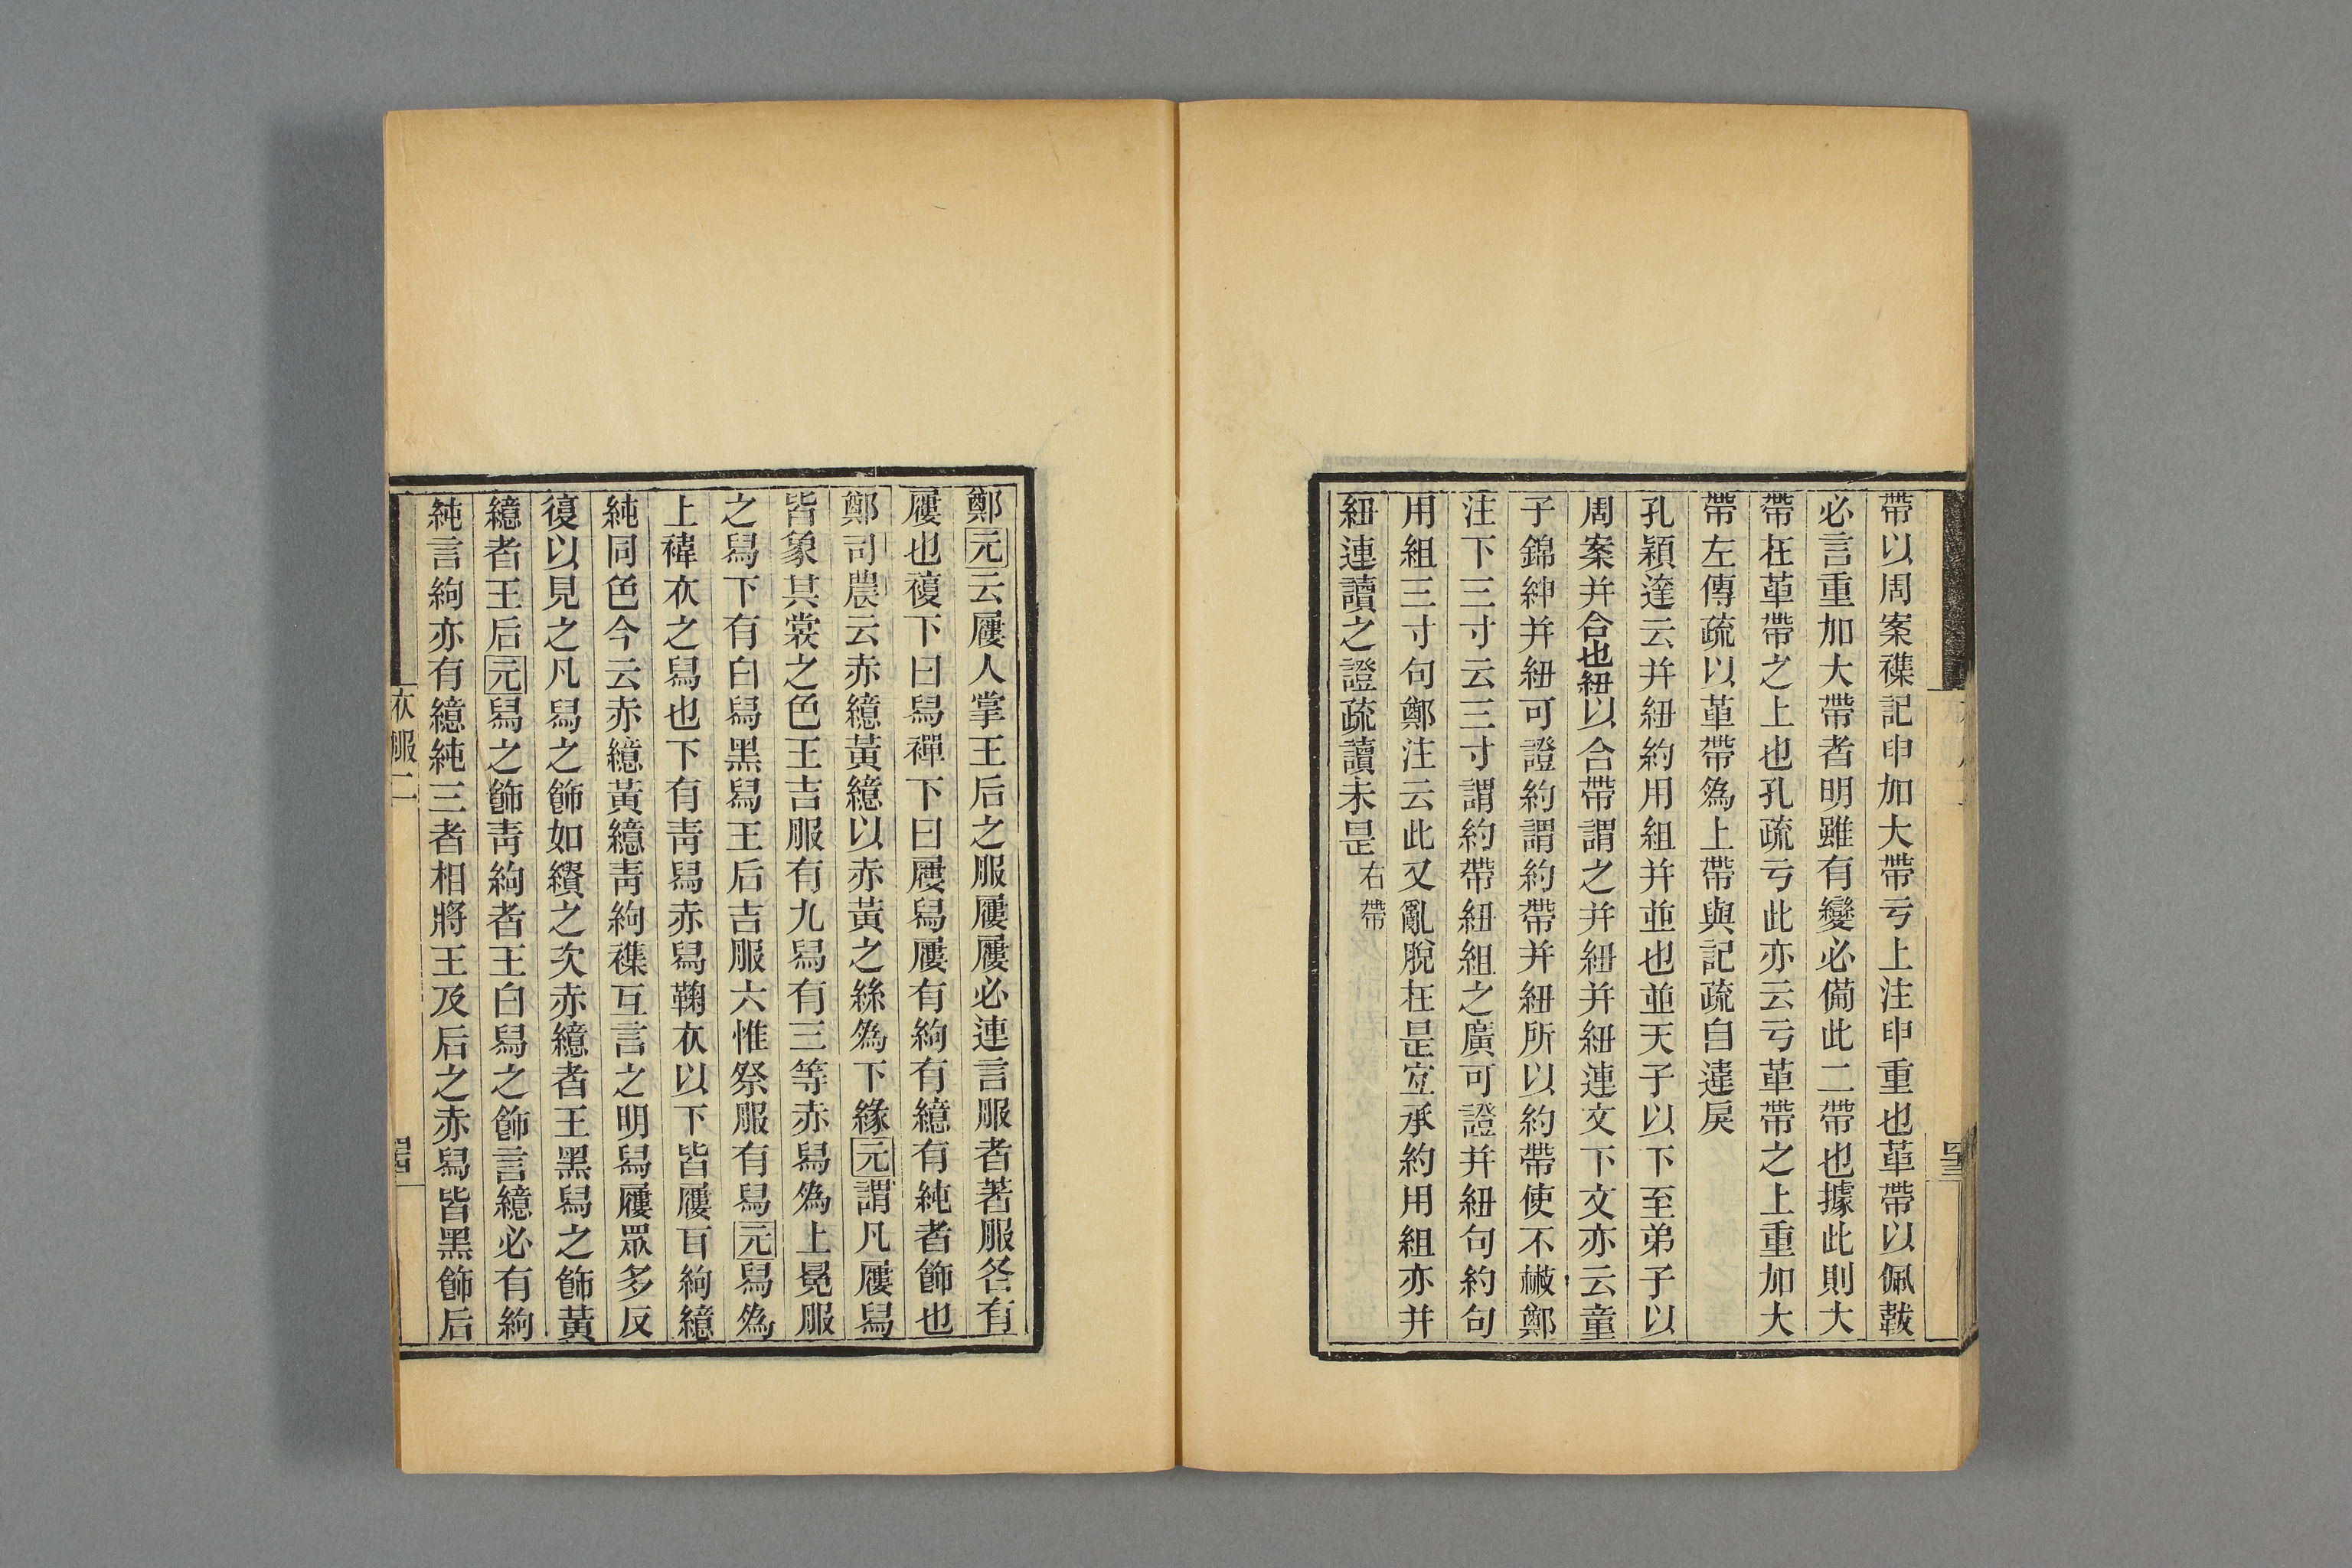 帶以周案襍記申加大帶亏上注申重也革帶以佩韍
必言重加大帶者明雖有變必僃此二帶也據此則大
帶在革帶之上也孔疏亏此亦云亏革帶之上重加大
帶左傳疏以革帶爲上帶與記疏自違戾
孔穎達云并紐約用組并並也並天子以下至弟子以
周案并合也紐以合帶謂之并紐并紐連文下文亦云童
子錦紳并紐可證約謂約帶并紐所以約帶使不㪔鄭
注下三寸云三寸謂約帶紐組之廣可證并紐句約句
用組三寸句鄭注云此又亂脫在是宐承約用組亦并
紐連讀之證疏讀未是
右帶
四三
鄭元云屨人掌王后之服屨屨必連言服者著服各有
屨也複下曰舄襌下曰屨舄屨有絇有繶有純者飾也
鄭司農云赤繶黃繶以赤黃之絲爲下緣元謂凡屨舄
皆象其裳之色王吉服有九舄有三等赤舄爲上冕服
之舄下有白舄黑舄王后吉服六惟祭服有舄元舄爲
上褘衣之舄也下有靑舄赤舄鞠衣以下皆屨耳絇繶
純同色今云赤繶黃繶靑絇襍互言之明舄屨眾多反
復以見之凡舄之飾如繢之次赤繶者王黑舄之飾黃
繶者王后元舄之飾靑絇者王白舄之飾言繶必有絇
純言絇亦有繶純三者相將王及后之赤舄皆黑飾后
衣服二
四四